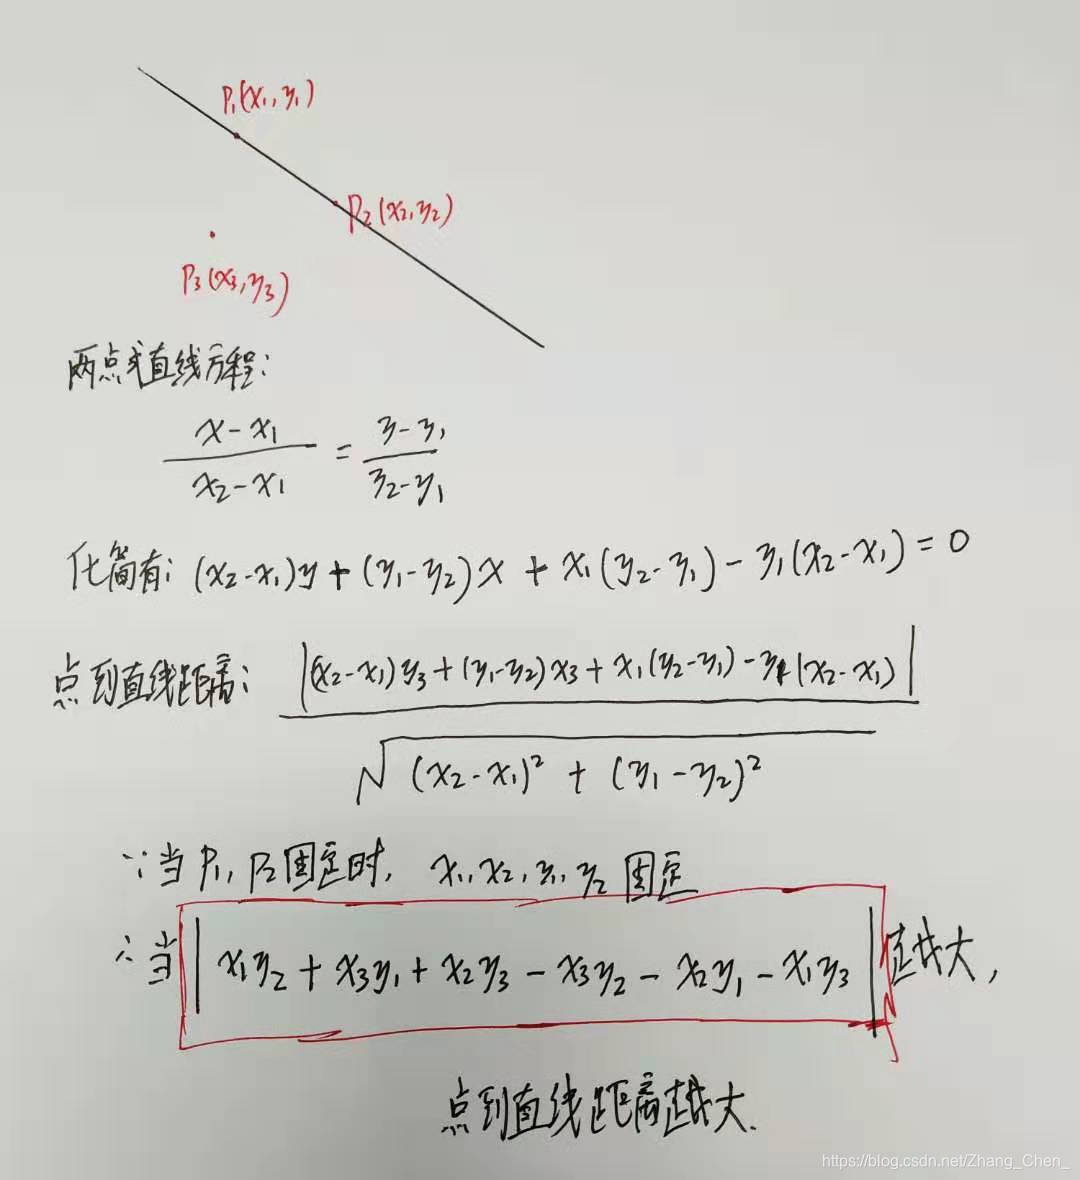 P₁(x₁,y₁)
P₂(x₂,y₂)
P₃(x₃,y₃)
两点式直线方程:
(x-x₁)/(x₂-x₁) = (y-y₁)/(y₂-y₁)
化简有: (x₂-x₁)y + (y₁-y₂)x + x₁(y₂-y₁) - y₁(x₂-x₁) = 0
点到直线距离: |(x₂-x₁)y₃ + (y₁-y₂)x₃ + x₁(y₂-y₁) - y₁(x₂-x₁)| / √((x₂-x₁)² + (y₁-y₂)²)
∵当 P₁, P₂固定时, x₁, x₂, y₁, y₂ 固定
∴当 | x₁y₂ + x₃y₁ + x₂y₃ - x₃y₂ - x₂y₁ - x₁y₃ | 值越大,
点到直线距离越大.
https://blog.csdn.net/Zhang_Chen_